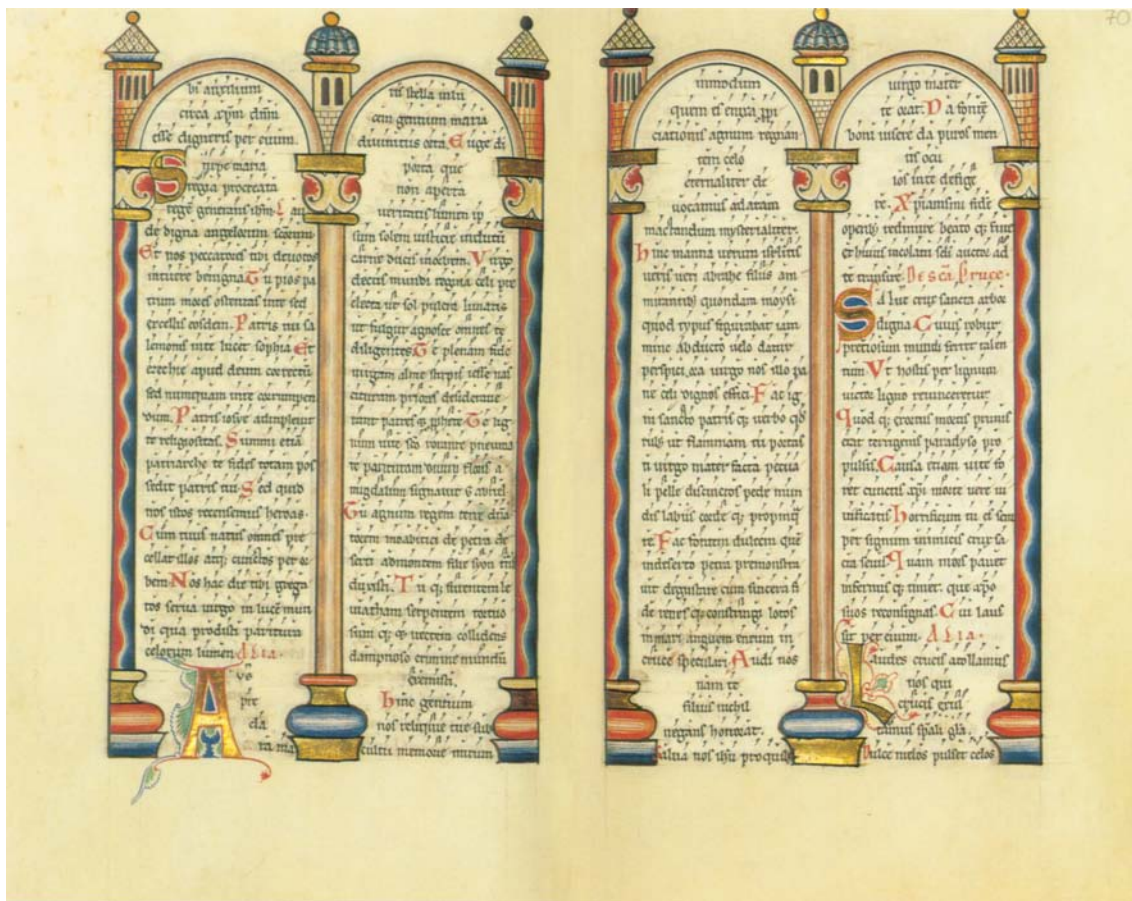 bi auxilium
circa xp̄m dn̄m
esse digneris per euum
Stirpe maria
regia procreata
regē generans ihm̄ Lau
de digna angelorum
Et nos peccatores tibi deuotos
intuere benigna Tu pios pa
trum mores ostentas in te sed
excellis eosdem Patris tui sa
lemonis in te lucet sophia Et
ezechie apud deum cor rectū
sed nunquam in te corrumpen
dum Patris iosye adimpleuit
te religiositas Summi etiā
patriarche te fides totam pos
sedit patris tui Sed quid
nos istos recensemus heroas
Cum tuus natus omnes pre
cellat illos atq; cunctos per or
bem Nos hac die tibi grega
tos serua uirgo in lucē mun
di qua prodisti paritura
celorum lumen ALIA
Aue
pre
cla
ra ma
ris stella in lu
cem gentium maria
diuinitus orta Euge di
porta que
non aperta
ueritatis lumen ip
sum solem iusticie indutū
carne ducis in orbem Virgo
decus mundi regina celi pre
electa ut sol pulcra lunaris
ut fulgur agnosce omnes te
diligentes Te plenam fide
uirgam alme stirpis iesse nas
cituram priores desideraue
rant patres & prophete Te lig
num uite sc̄o rorante pneuma
te parituram diuini floris a
migdalum signauit gabriel
Tu agnum regem terre dn̄a
torem moabitici de petra de
serti ad montem filie syon
duxisti Tu q; furentem le
uiatham serpentem tortuo
sum q; & uectem collidens
dampnoso crimine mundū
exemisti
hinc gentium
nos reliquie tue sub
cultu memorie mirum
in modum
quem es enixa ppi
ciationis agnum regnan
tem celo
eternaliter de
uocamus ad aram
mactandum mysterialiter
hinc manna uerum isrlitis
ueris ueri abrahe filiis am
mirantib; quondam moysi
quod typus figurabat iam
nunc abducto uelo datur
perspici ora uirgo nos illo pa
ne celi dignos effici Fac ig
ni sancto patris q; uerbo qd
rub; ut flammam tu portas
ti uirgo mater facta pecua
li pelle discinctos pede mun
dis labiis corde q; propinq
re Fac fontem dulcem que
in deserto petra premonstra
uit degustare cum sincera fi
de renes q; constringi lotos
in mari anguem eneum in
cruce speculari Audi nos
nam te
filius nichil
negans honorat
Salua nos ihu pro quib;
uirgo mater
te orat Da fontē
boni uisere da puros men
tis ocu
los in te defige
re Xpianismi fidē
operib; redimire beato q; fine
ex huius incolatu sc̄li auctor ad
te transire De scā Cruce
Salue crux sancta arbor
digna Cuius robur
preciosum mundi ferre talen
tum Vt hostis per lignum
uictor ligno reuinceretur
Quod q; exortus mortis prius
erat terrigenis paradyso pro
pulsis Causa etiam uite fo
ret cunctis xp̄i morte uere ui
uificatis horrificum tu es sem
per signum inimicis crux sa
cra seua Quam mors pauet
infernus q; timet que xp̄o
suos reconsignas Cui laus
sit per euum ALIA
Laudes crucis attollamus
nos qui
crucis exul
tamus spāli glā
Dulce melos pulset celos
70